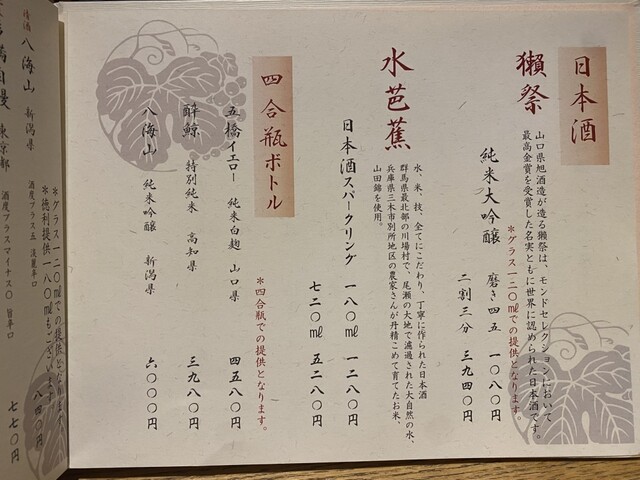 日本酒
獺祭
山口県旭酒造が造る獺祭は、モンドセレクションにおいて
最高金賞を受賞した名実ともに世界に認められた日本酒です。
*グラス一二〇㎖での提供となります。
純米大吟醸 磨き四五 一〇八〇円
二割三分 三九四〇円
水芭蕉
水、米、技、全てにこだわり、丁寧に作られた日本酒
群馬県最北部の川場村で、尾瀬の大地で濾過された大自然の水、
兵庫県三木市別所地区の農家さんが丹精こめて育てたお米、
山田錦を使用。
日本酒スパークリング 一八〇㎖ 一二八〇円
七二〇㎖ 五二八〇円
四合瓶ボトル
*四合瓶での提供となります。
五橋イエロー 純米白麹 山口県 四五八〇円
酔鯨 特別純米 高知県 三九八〇円
八海山 純米吟醸 新潟県 六〇〇〇円
*グラス一二〇㎖での提供となります。
*徳利提供一八〇㎖もございます。
清酒 八海山 新潟県 酒度プラス五 淡麗辛口 八四〇円
自慢 東京都 酒度プラスマイナス〇 旨辛口 七七〇円